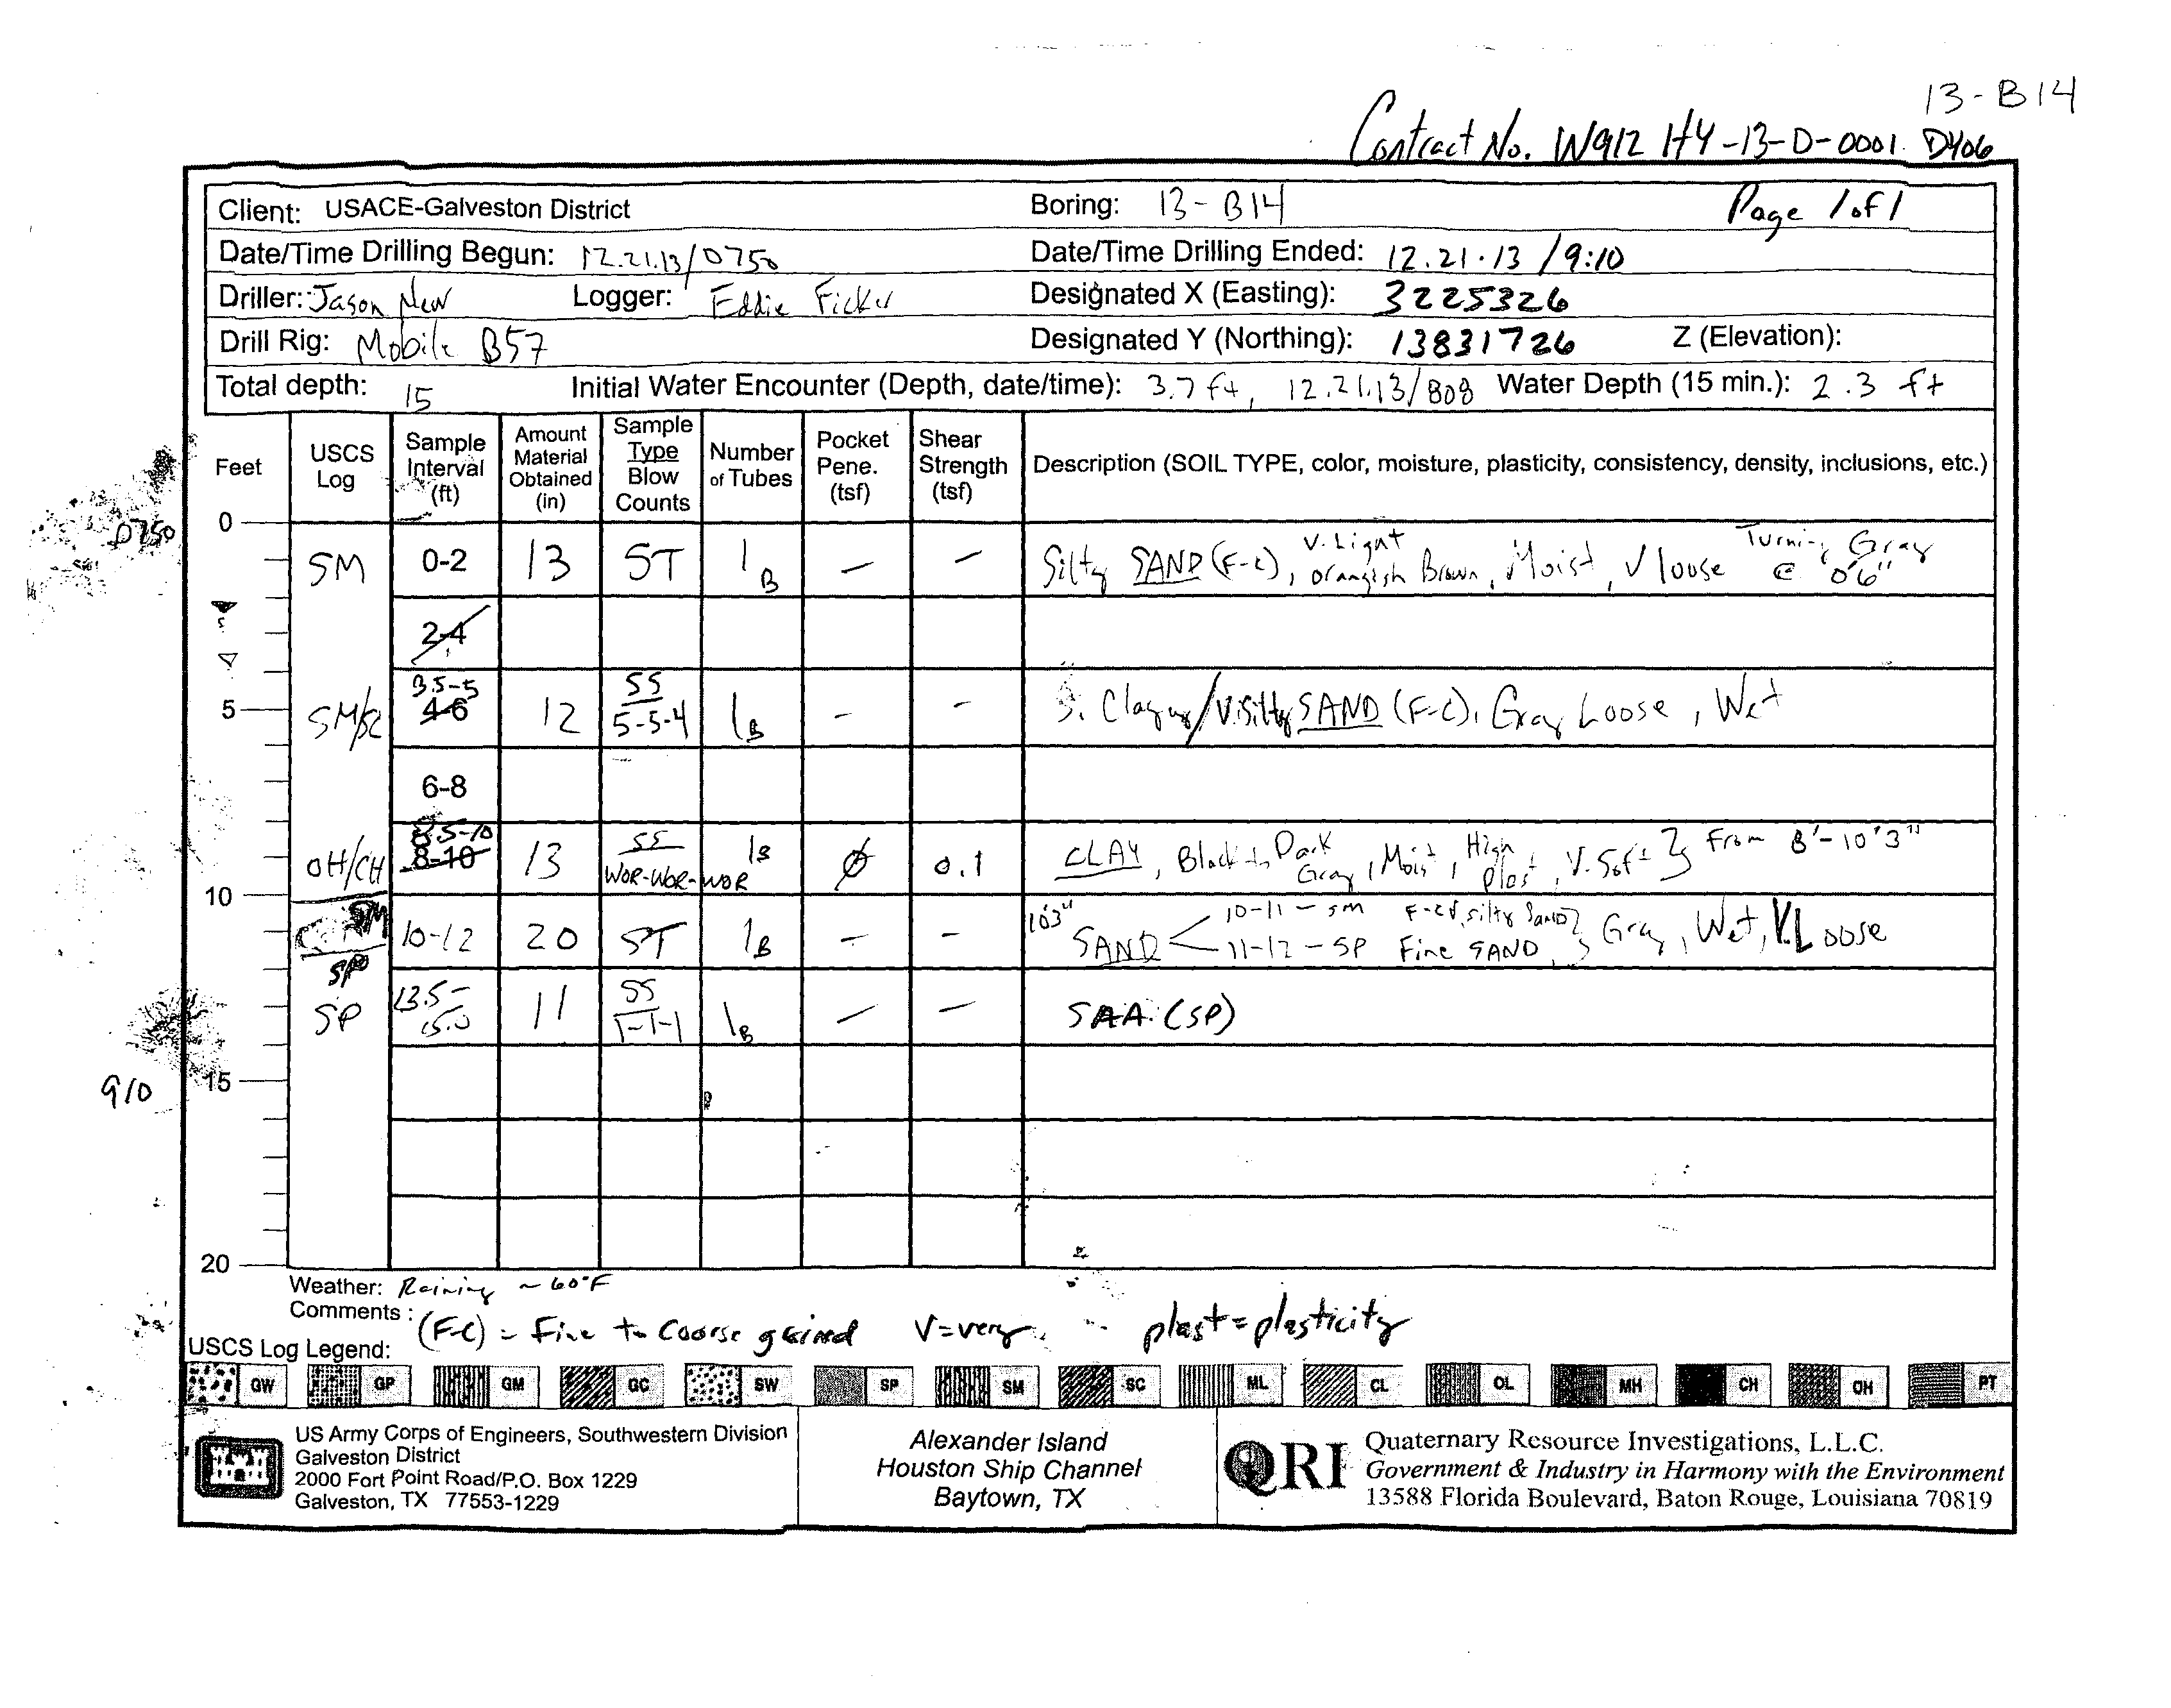 13-B14
Contract No. W912 HY-13-D-0001 DY06
Client: USACE-Galveston District Boring: 13-B14 Page 1 of 1
Date/Time Drilling Begun: 12.21.13/0750 Date/Time Drilling Ended: 12.21.13 /9:10
Driller: Jason New Logger: Eddie Designated X (Easting): 3225326
Drill Rig: Mobile B57 Designated Y (Northing): 13831726 Z (Elevation):
Total depth: 15 Initial Water Encounter (Depth, date/time): 3.7 ft, 12.21.13/808 Water Depth (15 min.): 2.3 ft
Feet USCS Log Sample Interval (ft) Amount Material Obtained (in) Sample Type Blow Counts Number of Tubes Pocket Pene. (tsf) Shear Strength (tsf) Description (SOIL TYPE, color, moisture, plasticity, consistency, density, inclusions, etc.)
0
0750
SM 0-2 13 ST 1B – – Silty SAND (F-C), V. Light orangish Brown, Moist, V loose Turning Gray @ 0'6"
2-4
5 SM/SC 3.5-5 4-6 12 SS 5-5-4 1B – – S. Clayey/V.Silty SAND (F-C), Gray Loose, Wet
6-8
OH/CH 8.5-10 8-10 13 SS WOR-WOR-WOR 1B Ø 0.1 CLAY, Black to Dark Gray, Moist, High plast, V. Soft } From 8'-10'3"
10
SM SP 10-12 20 ST 1B – – 10'3" SAND < 10-11 - SM F-C V. silty SAND 11-12 - SP Fine SAND } Gray, Wet, V.Loose
SP 13.5-15.0 11 SS 1-1-1 1B – – SAA (SP)
910 15
20
Weather: Raining ~ 60°F
Comments: (F-C) = Fine to Coarse grained V=very plast=plasticity
USCS Log Legend:
GW GP GM GC SW SP SM SC ML CL OL MH CH OH PT
US Army Corps of Engineers, Southwestern Division
Galveston District
2000 Fort Point Road/P.O. Box 1229
Galveston, TX 77553-1229
Alexander Island
Houston Ship Channel
Baytown, TX
QRI
Quaternary Resource Investigations, L.L.C.
Government & Industry in Harmony with the Environment
13588 Florida Boulevard, Baton Rouge, Louisiana 70819